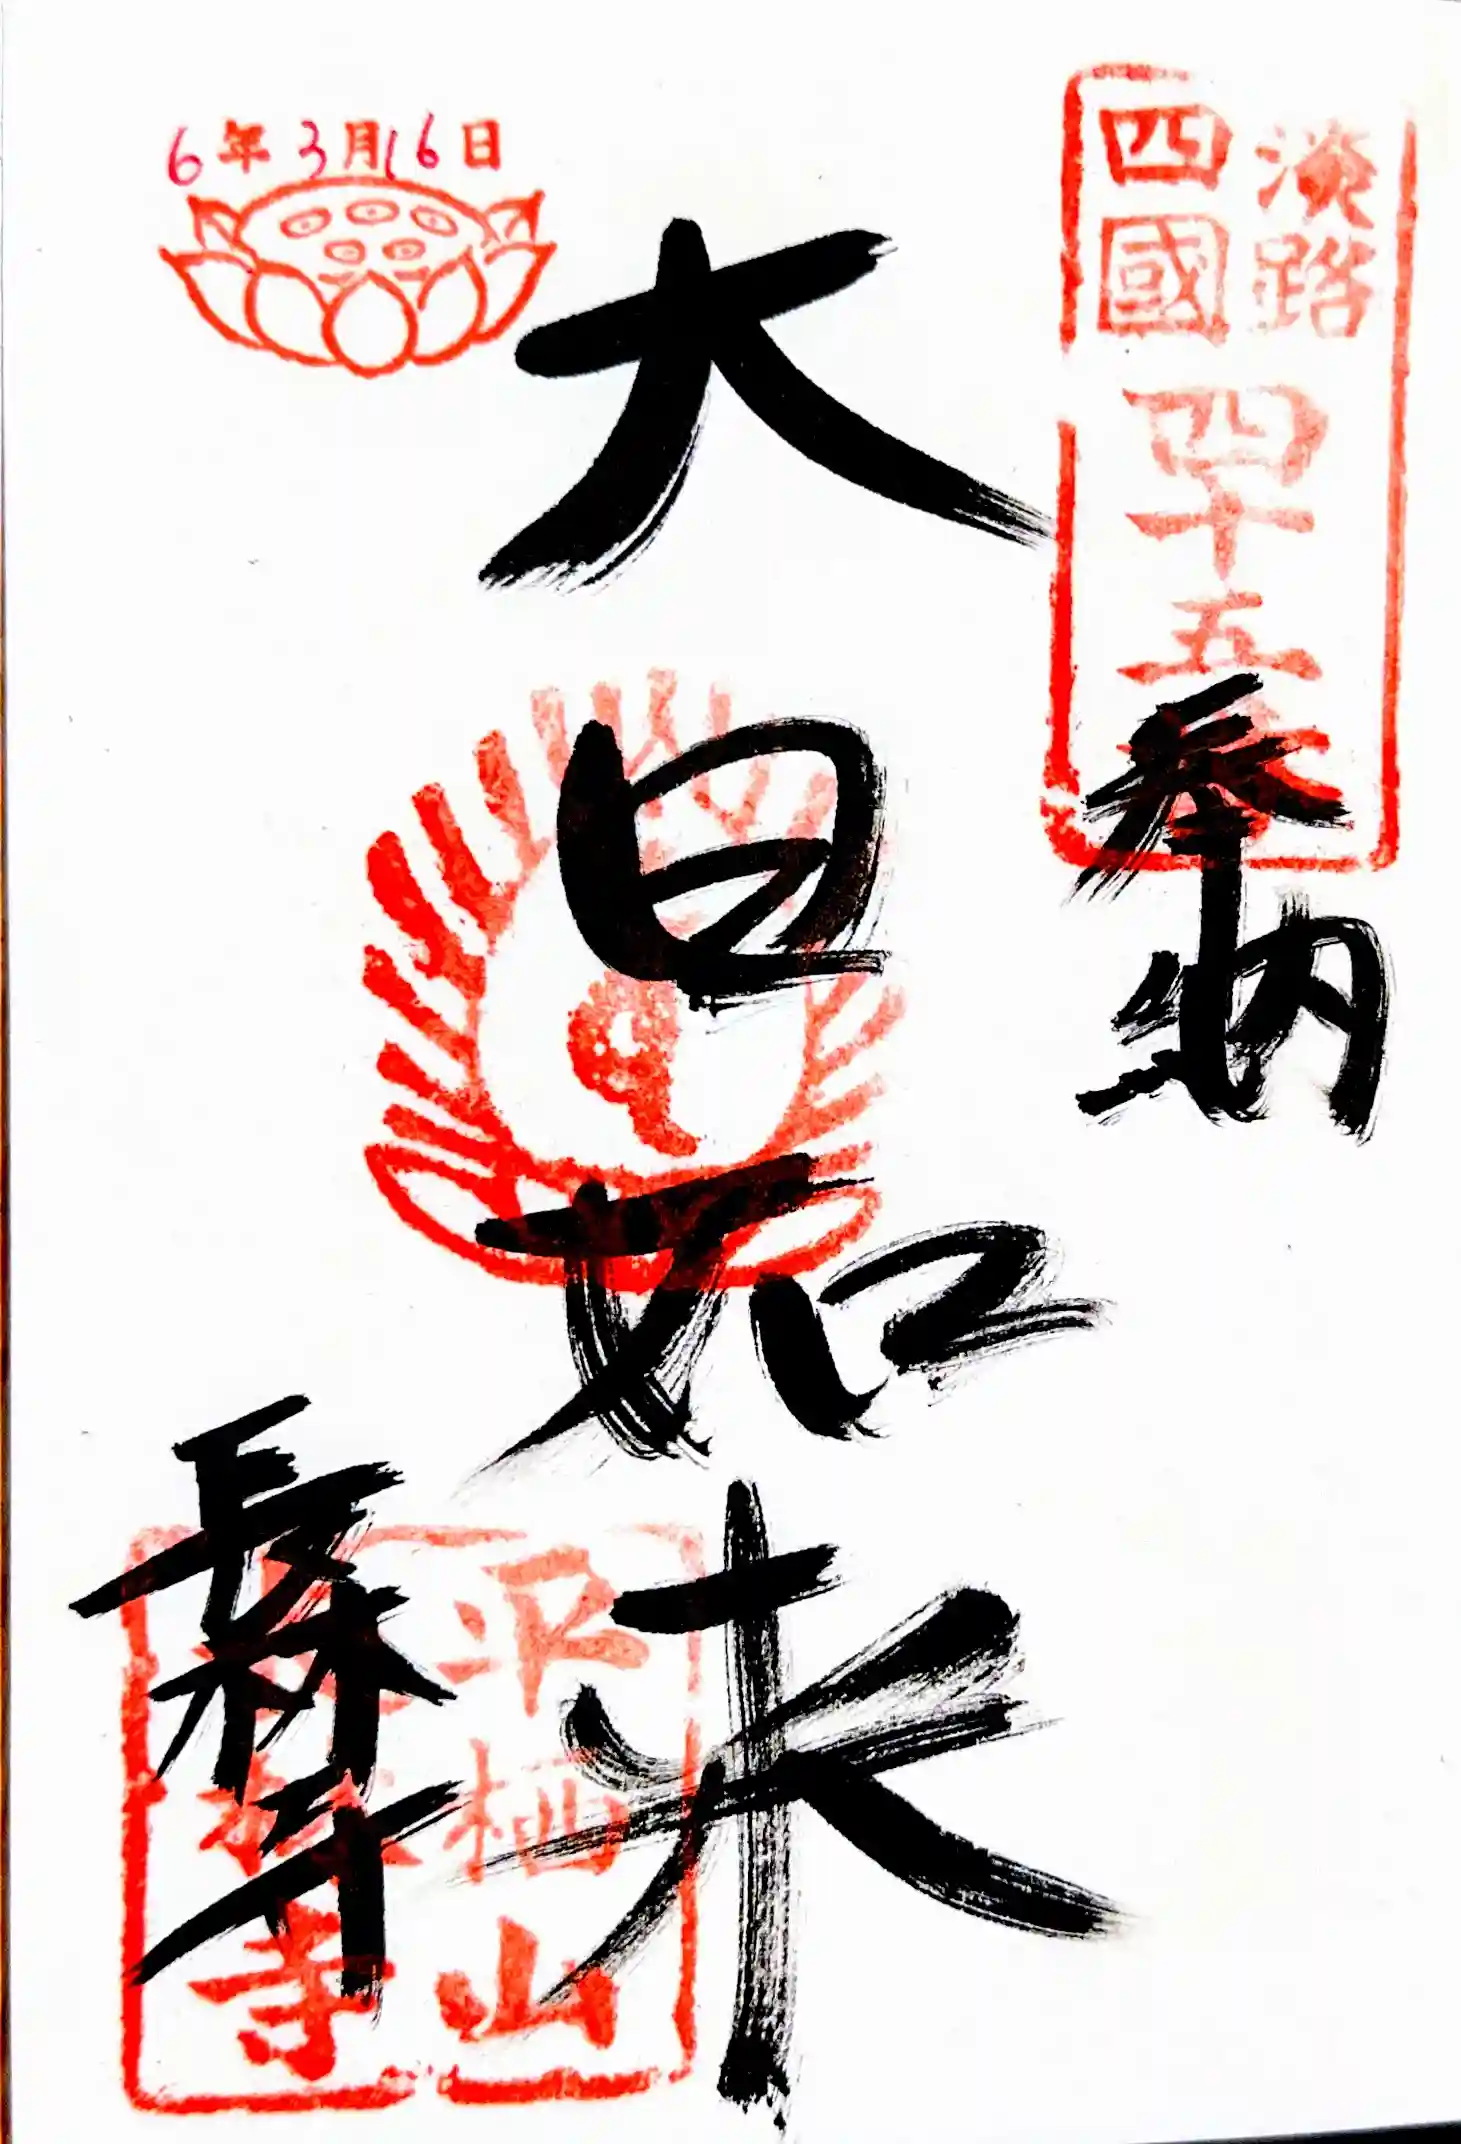 淡路
四國
四十五番
奉納
大日如来
長林寺
平栖山
長林寺
6年3月16日